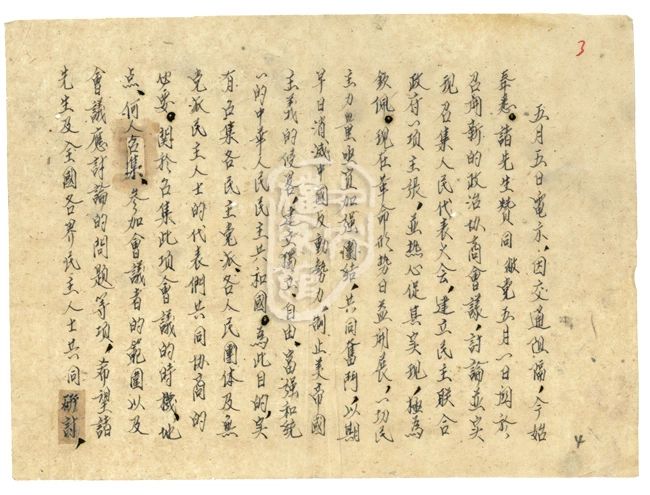 3
五月五日電示，因交通阻隔，今始
奉悉。諸先生贊同敝党五月一日関於
召開新的政治協商會議，討論並实
現召集人民代表大会，建立民主联合
政府一項主張，並热心促其实現，極為
欽佩。現在革命形势日益開展，一切民
主力量亟宜加强團結，共同奮鬥，以期
早日消滅中國反動勢力，制止美帝國
主義的侵畧，建立獨立、自由、富强和統
一的中華人民民主共和國。為此目的，实
有召集各民主党派、各人民團体及無
党派民主人士的代表們共同協商的
必要。関於召集此項會議的時機、地
点、何人召集、參加會議者的範圍以及
會議應討論的問題等項，希望諸
先生及全國各界民主人士共同研討，
4